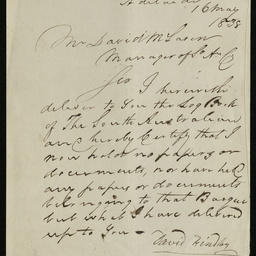 Adelaide
16 May
1838
Mr David McLaren
Manager of So Au Co
Sir
I herewith
deliver to you the Log Book
of The South Australian
and hereby Certify that I
now hold no papers or
documents, nor have held
any papers or documents
belonging to that Barque
but what I have delivered
up to you –
David